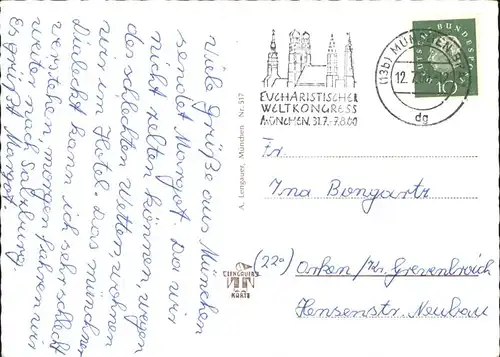 Viele Grüße aus München
sendet Margot. Da wir
nicht zelten können, wegen
des schlechten Wetters, wohnen
wir im Hotel. Das münchner
Dialekt kann ich sehr schlecht
verstehen, morgen fahren wir
weiter nach Salzburg.
Es grüßt Margot.
A. Lengauer, München Nr. 517
EUCHARISTISCHER
WELTKONGRESS
MÜNCHEN, 31.7.-7.8.60
(13b) MÜNCHEN
12.7.
dg
DEUTSCHE BUNDESPOST
10
Fr.
Ina Bongartz
(22a) Orken/Kr. Grevenbroich
Hensenstr. Neubau
LENGAUER
KARTE